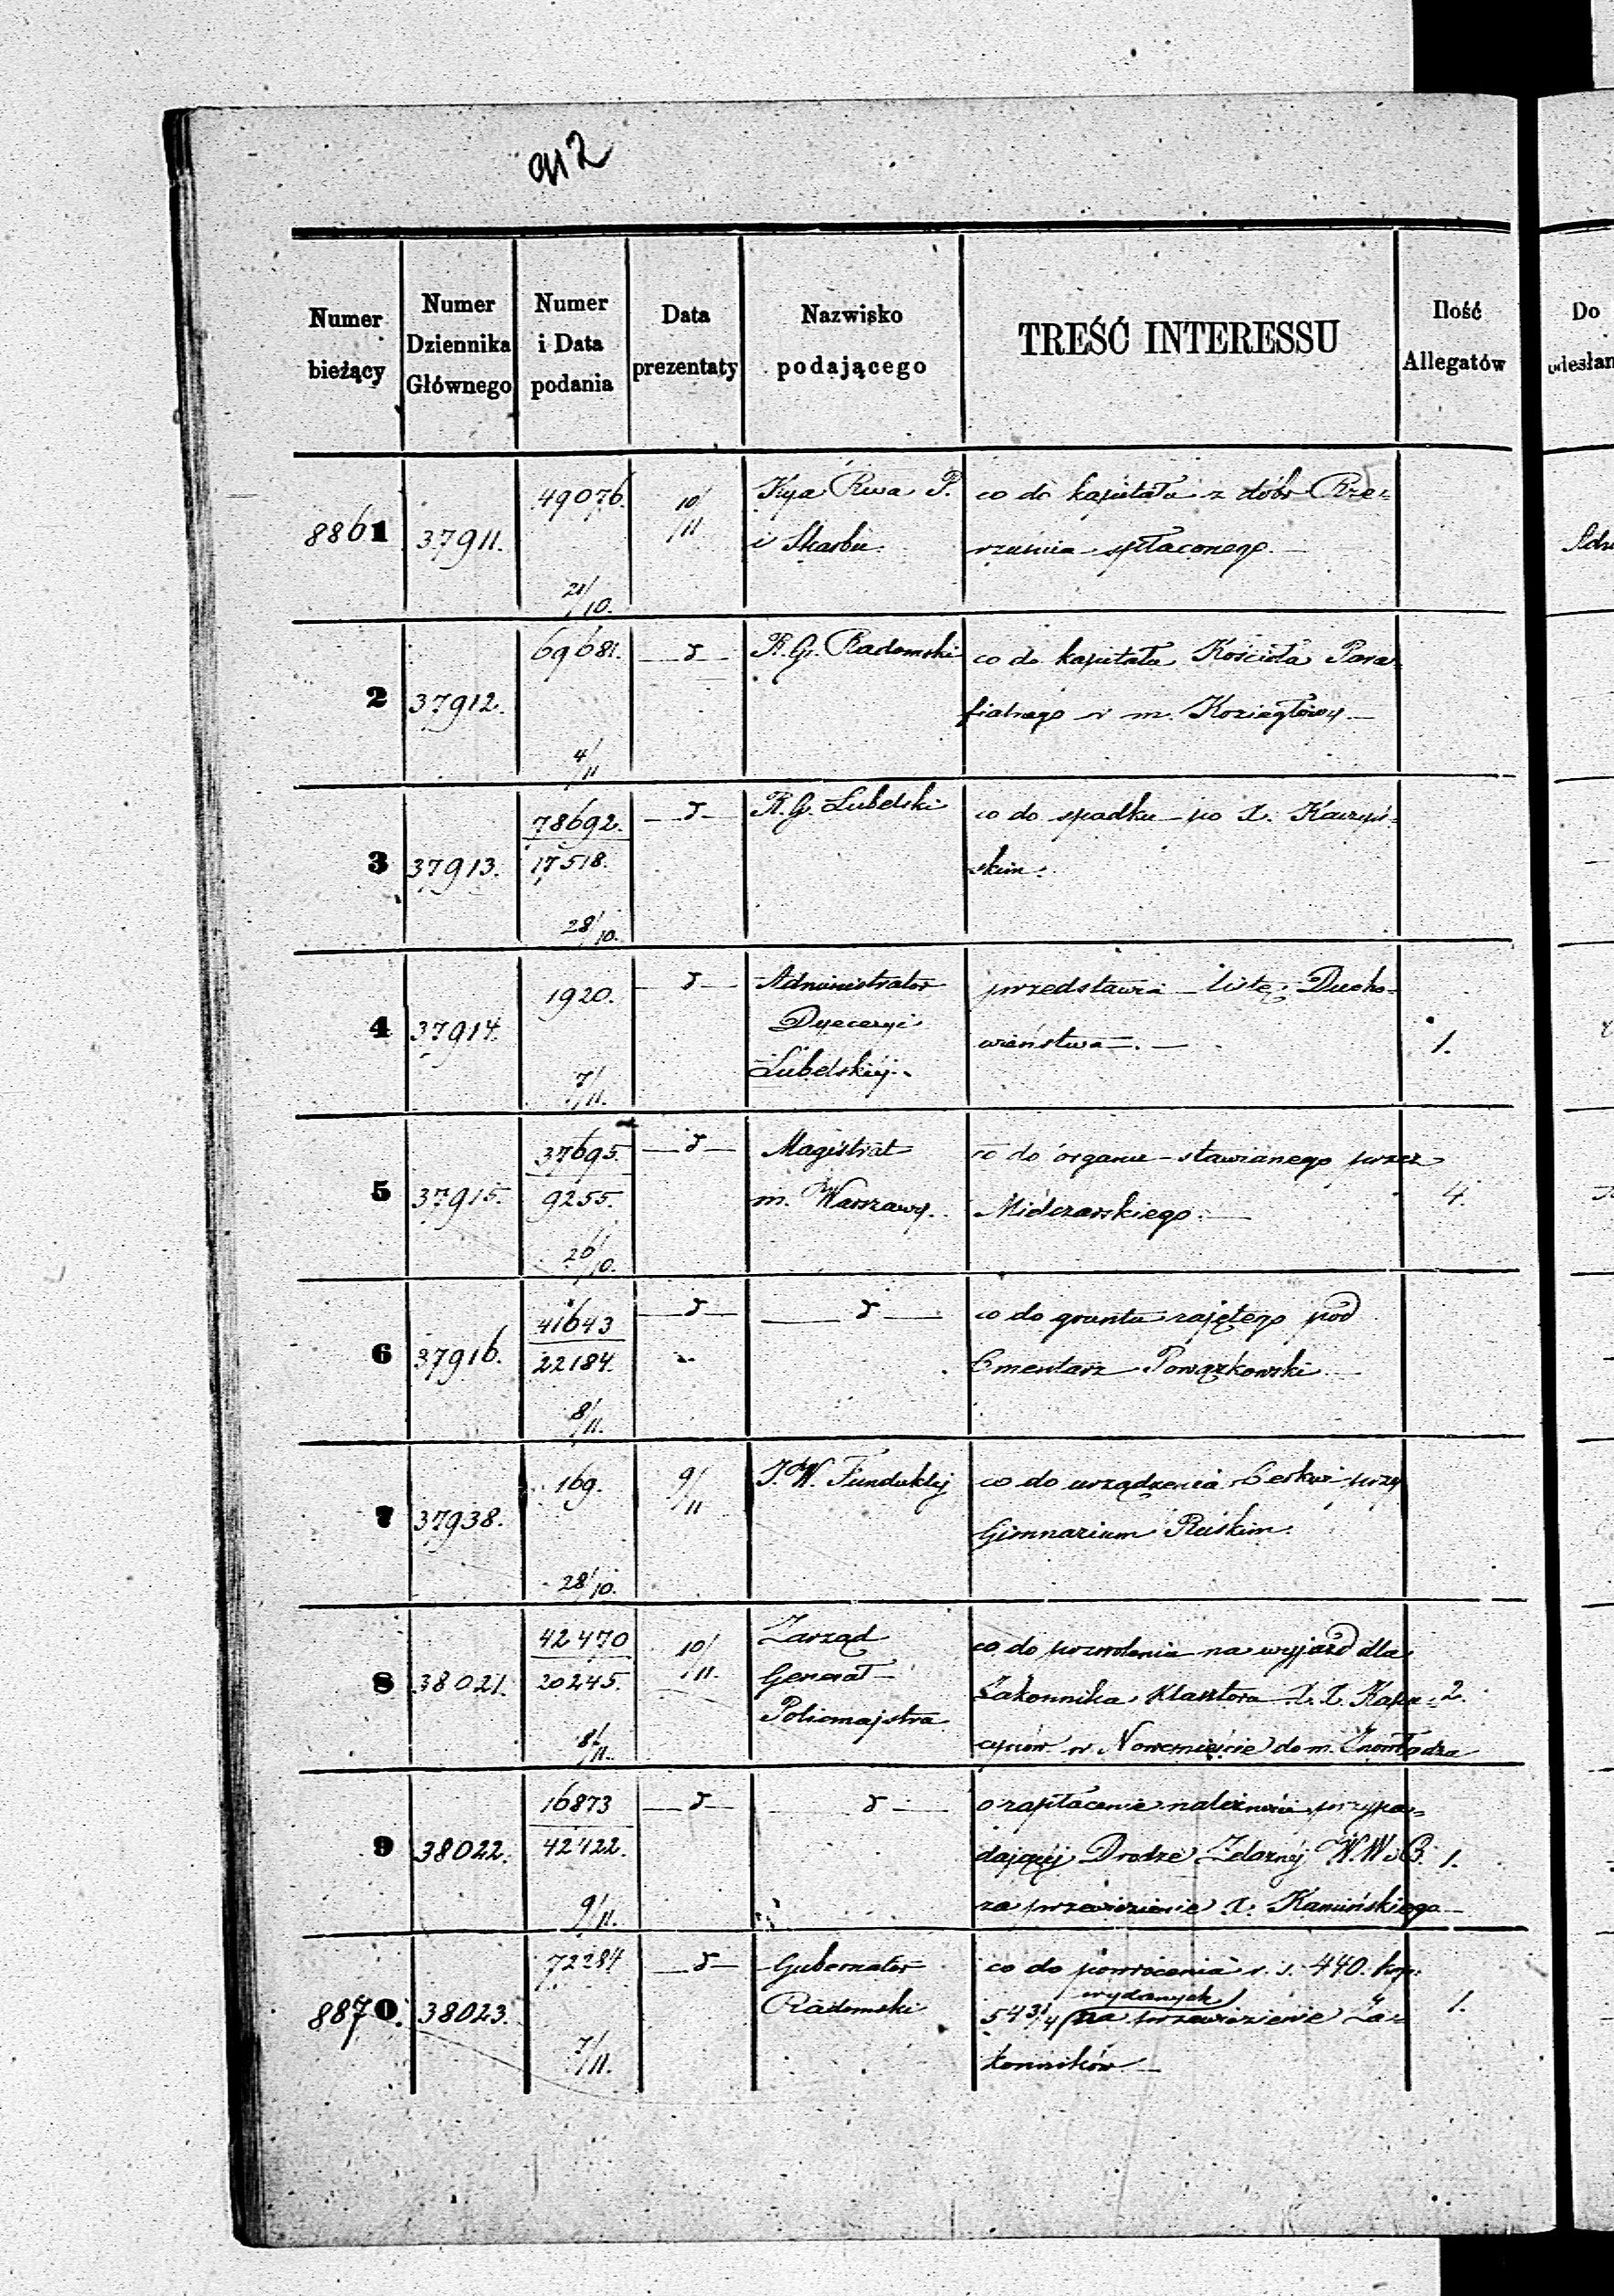 912
Numer bieżący
Numer Dziennika Głównego
Numer i Data podania
Data prezentaty
Nazwisko podającego
TREŚĆ INTERESSU
Ilość Allegatów
Do odesłan
8861 37911. 49076. 21/10. 10/11
Kya Rwa P.
i Skarbu.
co do kapitału z dóbr Rze=
rzuśnia spłaconego.
2 37912. 69681. 4/11 — d —
R. G. Radomski
co do kapitału Kościoła Para
fialnego w m. Koziegłowy
3 37913. 78692. 17518. 28/10. — d —
R. G. Lubelski
co do spadku po X.
skim.
4 37914. 1920. 7/11. — d —
Administrator
Dyecezyi
Lubelskiéj.
przedstawia listę Ducho-
wieństwa.
1.
5 37915. 37695. 9255. 26/10. — d —
Magistrat
m. Warszawy.
co do organu stawianego przez
4.
6 37916. 41643 22184. 8/11. — d —
— d —
co do gruntu zajętego pod
Cmentarz Powązkowski
7 37938. 169. 28/10. 9/11
J. W. Funduklej
co do urządzenia Cerkwi przy
Gimnazium Ruskim.
8 38021. 42470 20245. 8/11. 10/11.
Zarząd
Generał
Policmajstra
co do pozwolenia na wyjazd dla
Zakonnika Klasztora X. X. Kapu=
cynów w Nowemieście do m. Inowłodza
2.
9 38022. 16873 42422. 9/11. — d —
— d —
o zapłacenie należności przypa-
dającéj Drodze Żelaznéj W. W. i B.
za przewiezienie X. Kamińskiego
1.
8870. 38023. 72284 7/11. — d —
Gubernator
Radomski
co do powrócenia r. s. 440. kop.
wydanych
54 3/4 na przewiezienie Za=
konników
1.